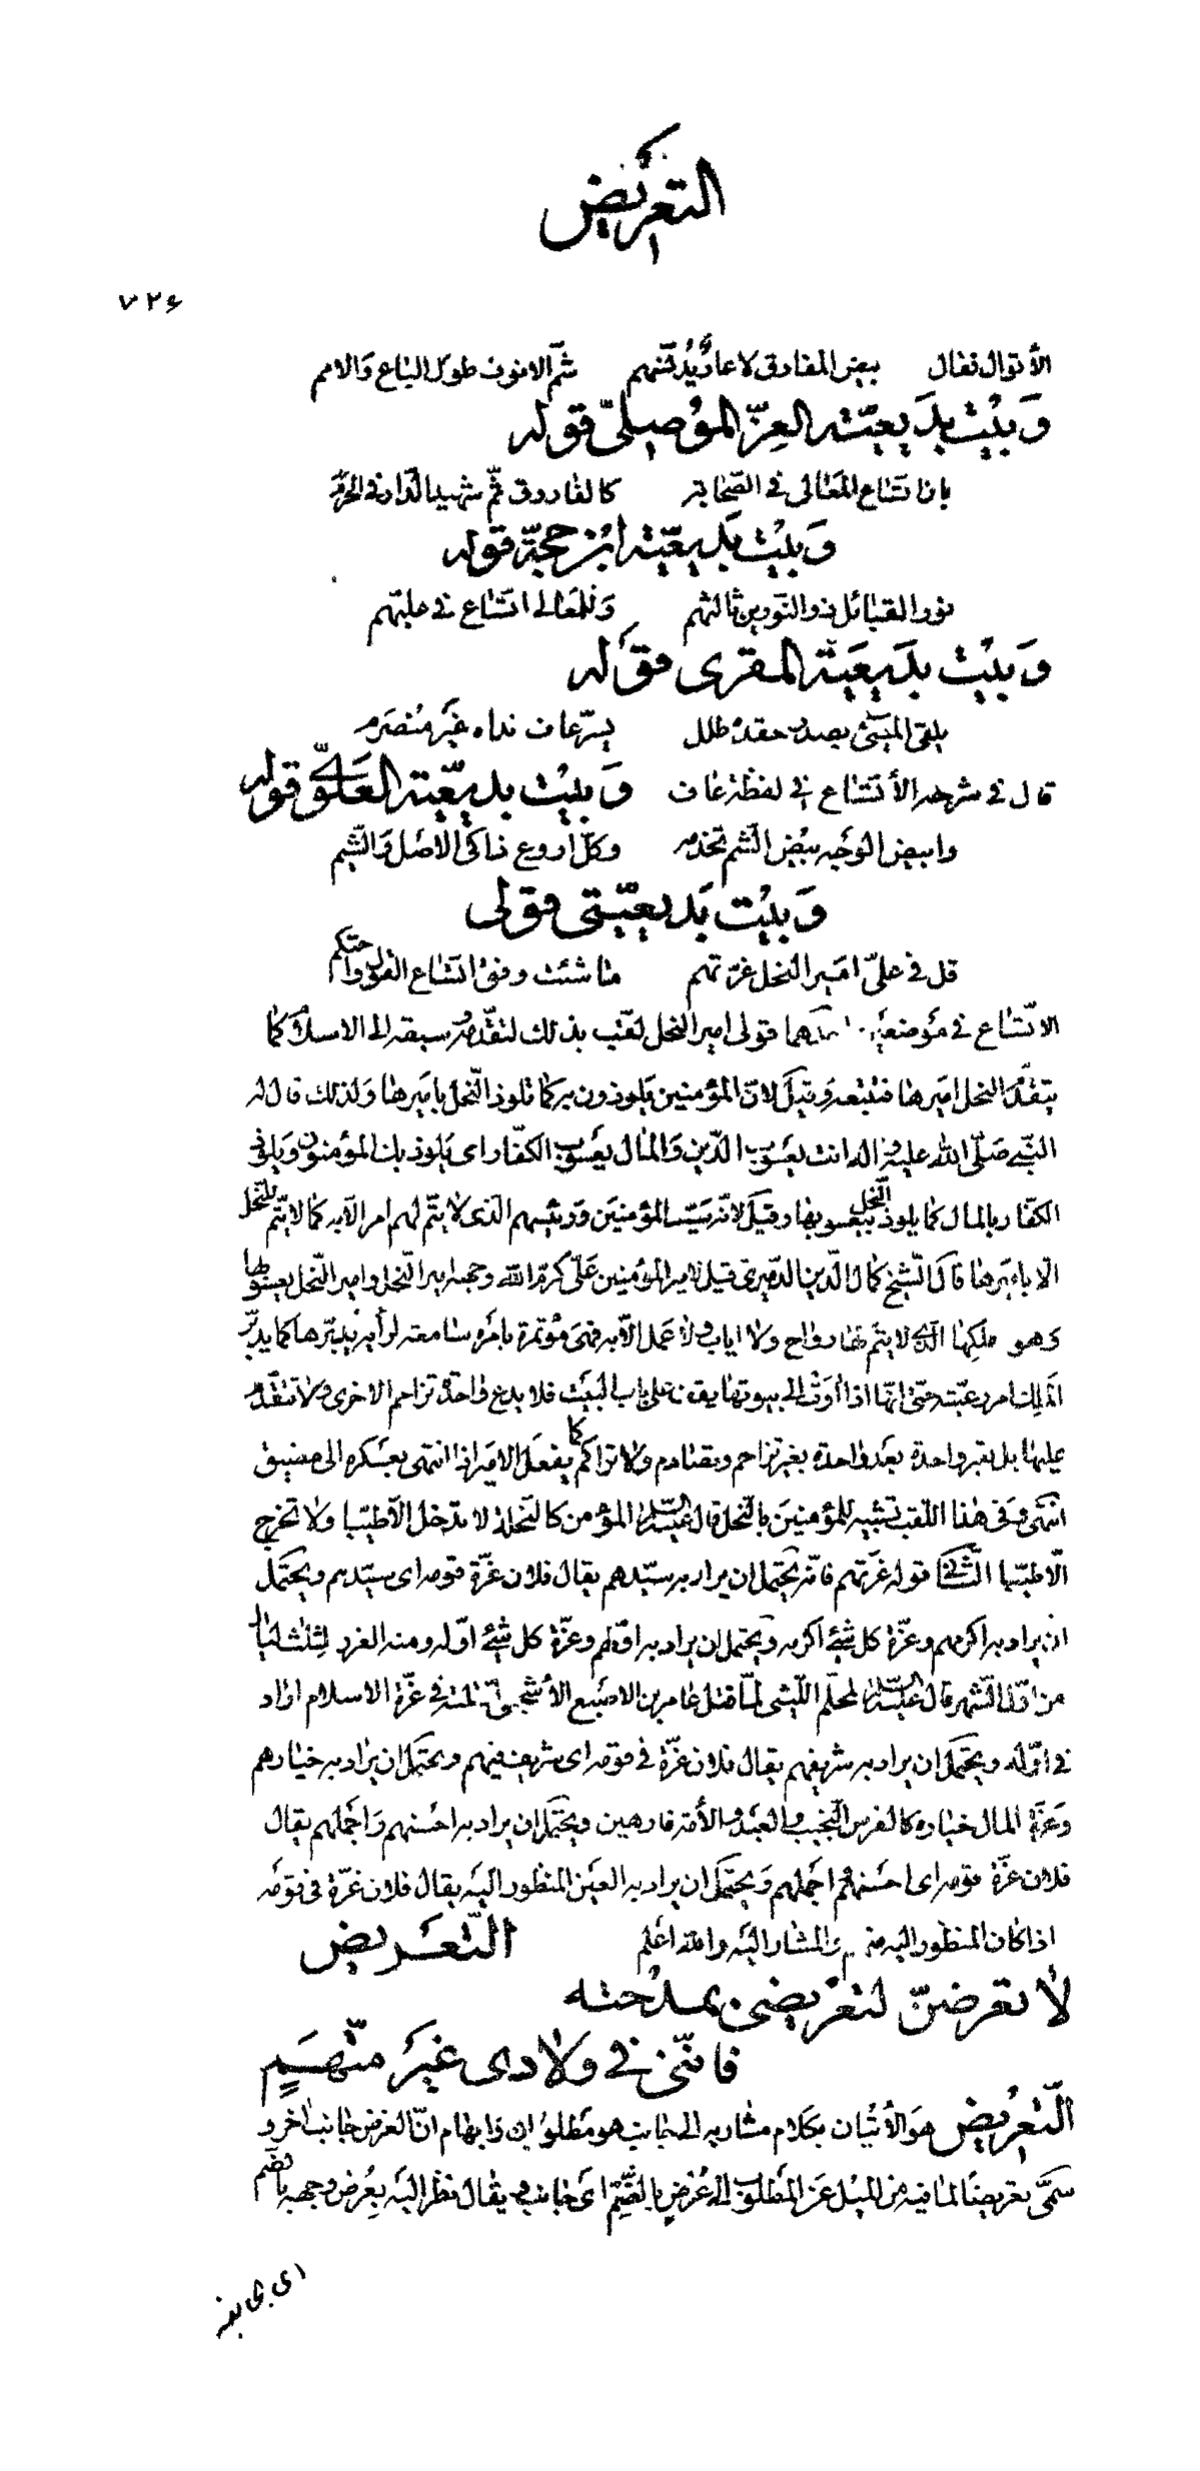 التعريض
٧٢۶
الأقوال فقال بيض المفارق لا عار يدنسهم شم الانوف طوال الباع والامم
وبيت بديعيته العز الموصلي قوله
بان اتساع المعالى فى الصحابة كالفاروق ثم شهيد الدار فى الحرم
وبيت بديعيته ابن حجة قوله
نور القبائل ذو النورين ثالثهم وللمعالى اتساع فى عليهم
وبيت بديعية المقرى قوله
يلقى المسئ بصدر حقده طلل بسر عاف نداه غير منصرم
قال فى شرحه الأتساع فى لفظة عاف وبيت بديعية العلوى قوله
وابيض الوجه بيض الشم تخدمه وكل اروع ذاكى الاصل والشيم
وبيت بديعيتى قولى
قل فى على امير النحل غرتهم ما شئت وفق اتساع القول واحتكم
الاتساع فى موضعين احدهما قولى امير النحل لقب بذلك لتقدمه وسبقه الى الاسلام كما
يتقدم النحل اميرها فتتبعه وقيل لان المؤمنين يلوذون به كما تلوذ النحل باميرها ولذلك قال له
النبى صلى الله عليه واله انت يعسوب الدين والمال يعسوب الكفار اى يلوذ بك المؤمنون ويلوذ
الكفار بالمال كما يلوذ النحل بيعسوبها وقيل لانه سيد المؤمنين ورئيسهم الذى لا يتم لهم امر الا به كما لا يتم للنحل
الا باميرها قال الشيخ كمال الدين الدميرى قيل لامير المؤمنين على كرم الله وجهه امير النحل وامير النحل يعسوبها
وهو ملكها الذى لا يتم لها رواح ولا اياب ولا عمل الا به فهى مؤتمرة بامره سامعة لرأيه يدبرها كما يدبر
الملك امر رعيته حتى انها اذا أوت الى بيوتها يقف على باب البيت فلا يدع واحدة تزاحم الاخرى ولا تتقدم
عليها بل تعبر واحدة بعد واحدة بغير تزاحم وتصادم ولا تراكم كما يفعل الامير اذا انتهى بعسكره الى مضيق
انتهى وفى هذا اللقب تشبيه للمؤمنين بالنحل قال عليه السلام المؤمن كالنحلة لا تدخل الا طيبا ولا تخرج
الا طيبا الثانى قوله غرتهم فانه يحتمل ان يراد به سيدهم يقال فلان غرة قومه اى سيدهم ويحتمل
ان يراد به اكرمهم وغرة كل شئ اكرمه ويحتمل ان يراد به اولهم وغرة كل شئ اوله ومنه الغرر لثلث ليال
من اول الشهر قال عليه السلام لمحلم الليثى لما قتل عامر بن الاضبع الأشجعى قتلته فى غرة الاسلام اراد
فى اوله ويحتمل ان يراد به شريفهم يقال فلان غرة فى قومه اى شريف فيهم ويحتمل ان يراد به خيارهم
وغرة المال خياره كالفرس النجيب والعبد والأمة فارهين ويحتمل ان يراد به احسنهم واجملهم يقال
فلان غرة قومه اى احسنهم واجملهم ويحتمل ان يراد به العين المنظور اليه يقال فلان غرة فى قومه
اذا كان المنظور اليه منهم والمشار اليه والله اعلم التعريض
لا تعرضن لتعريضى بمدحته
فاننى فى ولادى غير متهم
التعريض هو الأتيان بكلام مشار به الى جانب هو مطلوبك وايهام ان الغرض جانب اخر و
سمى تعريضا لما فيه من الميل عن المطلوب الى عرض بالضم اى جانب يقال نظر اليه بعرض وجهه بالضم
اى بجانبه